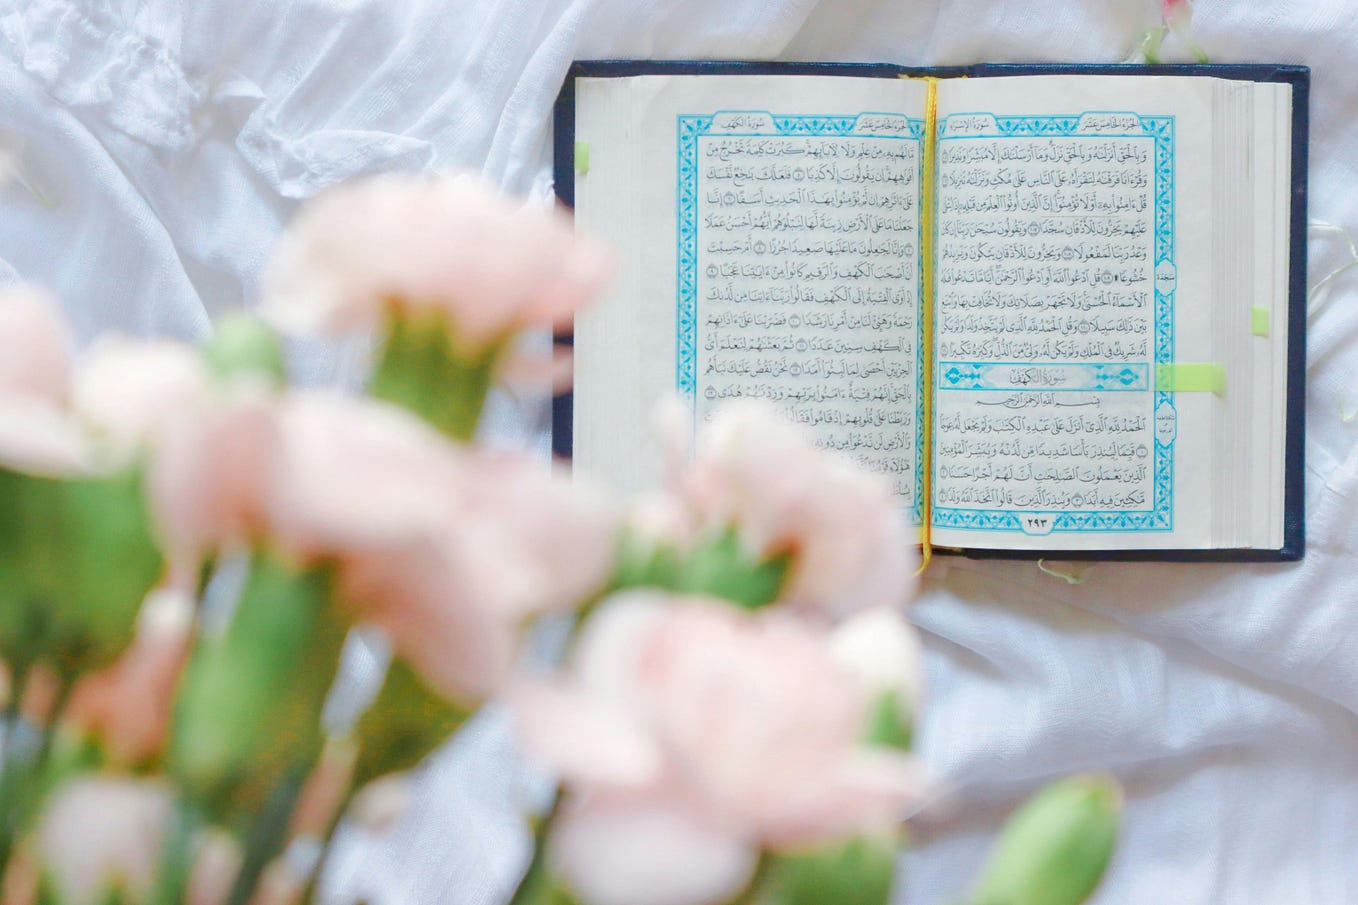 الجزء الخامس عشر سورة الإسراء
وَبِٱلْحَقِّ أَنزَلْنَٰهُ وَبِٱلْحَقِّ نَزَلَ وَمَآ أَرْسَلْنَٰكَ إِلَّا مُبَشِّرًا وَنَذِيرًا ١٠٥
وَقُرْءَانًا فَرَقْنَٰهُ لِتَقْرَأَهُۥ عَلَى ٱلنَّاسِ عَلَىٰ مُكْثٍ وَنَزَّلْنَٰهُ تَنزِيلًا ١٠٦
قُلْ ءَامِنُوا۟ بِهِۦٓ أَوْ لَا تُؤْمِنُوٓا۟ إِنَّ ٱلَّذِينَ أُوتُوا۟ ٱلْعِلْمَ مِن قَبْلِهِۦٓ إِذَا يُتْلَىٰ
عَلَيْهِمْ يَخِرُّونَ لِلْأَذْقَانِ سُجَّدًا ١٠٧ وَيَقُولُونَ سُبْحَٰنَ رَبِّنَآ إِن كَانَ
وَعْدُ رَبِّنَا لَمَفْعُولًا ١٠٨ وَيَخِرُّونَ لِلْأَذْقَانِ يَبْكُونَ وَيَزِيدُهُمْ
خُشُوعًا ۩ ١٠٩ قُلِ ٱدْعُوا۟ ٱللَّهَ أَوِ ٱدْعُوا۟ ٱلرَّحْمَٰنَ أَيًّا مَّا تَدْعُوا۟ فَلَهُ
ٱلْأَسْمَآءُ ٱلْحُسْنَىٰ وَلَا تَجْهَرْ بِصَلَاتِكَ وَلَا تُخَافِتْ بِهَا وَٱبْتَغِ
بَيْنَ ذَٰلِكَ سَبِيلًا ١١٠ وَقُلِ ٱلْحَمْدُ لِلَّهِ ٱلَّذِى لَمْ يَتَّخِذْ وَلَدًا وَلَمْ يَكُن
لَّهُۥ شَرِيكٌ فِى ٱلْمُلْكِ وَلَمْ يَكُن لَّهُۥ وَلِىٌّ مِّنَ ٱلذُّلِّ وَكَبِّرْهُ تَكْبِيرًۢا ١١١
سجدة
سورة الكهف
بِسْمِ ٱللَّهِ ٱلرَّحْمَٰنِ ٱلرَّحِيمِ
ٱلْحَمْدُ لِلَّهِ ٱلَّذِىٓ أَنزَلَ عَلَىٰ عَبْدِهِ ٱلْكِتَٰبَ وَلَمْ يَجْعَل لَّهُۥ عِوَجَا
١ قَيِّمًا لِّيُنذِرَ بَأْسًا شَدِيدًا مِّن لَّدُنْهُ وَيُبَشِّرَ ٱلْمُؤْمِنِينَ
ٱلَّذِينَ يَعْمَلُونَ ٱلصَّٰلِحَٰتِ أَنَّ لَهُمْ أَجْرًا حَسَنًا ٢
مَّٰكِثِينَ فِيهِ أَبَدًا ٣ وَيُنذِرَ ٱلَّذِينَ قَالُوا۟ ٱتَّخَذَ ٱللَّهُ وَلَدًا ٤
٢٩٣
الجزء الخامس عشر سورة الكهف
مَّا لَهُم بِهِۦ مِنْ عِلْمٍ وَلَا لِءَابَآئِهِمْ كَبُرَتْ كَلِمَةً تَخْرُجُ مِنْ
أَفْوَٰهِهِمْ إِن يَقُولُونَ إِلَّا كَذِبًا ٥ فَلَعَلَّكَ بَٰخِعٌ نَّفْسَكَ
عَلَىٰٓ ءَاثَٰرِهِمْ إِن لَّمْ يُؤْمِنُوا۟ بِهَٰذَا ٱلْحَدِيثِ أَسَفًا ٦ إِنَّا
جَعَلْنَا مَا عَلَى ٱلْأَرْضِ زِينَةً لَّهَا لِنَبْلُوَهُمْ أَيُّهُمْ أَحْسَنُ عَمَلًا
٧ وَإِنَّا لَجَٰعِلُونَ مَا عَلَيْهَا صَعِيدًا جُرُزًا ٨ أَمْ حَسِبْتَ
أَنَّ أَصْحَٰبَ ٱلْكَهْفِ وَٱلرَّقِيمِ كَانُوا۟ مِنْ ءَايَٰتِنَا عَجَبًا ٩
إِذْ أَوَى ٱلْفِتْيَةُ إِلَى ٱلْكَهْفِ فَقَالُوا۟ رَبَّنَآ ءَاتِنَا مِن لَّدُنكَ
رَحْمَةً وَهَيِّئْ لَنَا مِنْ أَمْرِنَا رَشَدًا ١٠ فَضَرَبْنَا عَلَىٰٓ ءَاذَانِهِمْ
فِى ٱلْكَهْفِ سِنِينَ عَدَدًا ١١ ثُمَّ بَعَثْنَٰهُمْ لِنَعْلَمَ أَىُّ
ٱلْحِزْبَيْنِ أَحْصَىٰ لِمَا لَبِثُوٓا۟ أَمَدًا ١٢ نَّحْنُ نَقُصُّ عَلَيْكَ نَبَأَهُم
بِٱلْحَقِّ إِنَّهُمْ فِتْيَةٌ ءَامَنُوا۟ بِرَبِّهِمْ وَزِدْنَٰهُمْ هُدًى ١٣
وَرَبَطْنَا عَلَىٰ قُلُوبِهِمْ إِذْ قَامُوا۟ فَقَالُوا۟
وَٱلْأَرْضِ لَن نَّدْعُوَا۟ مِن دُونِهِۦٓ
هَٰٓؤُلَآءِ قَوْمُنَا